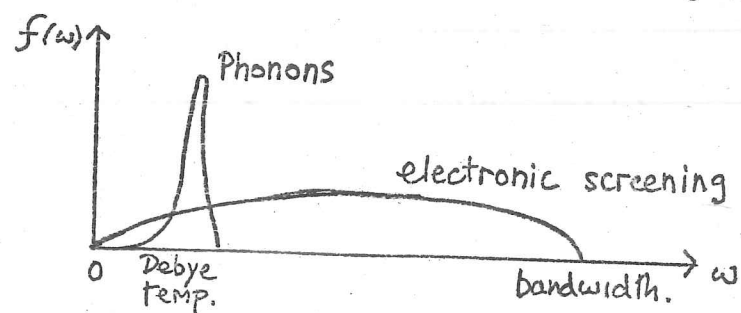 f(ω)
Phonons
electronic screening
0
Debye
temp.
bandwidth.
ω